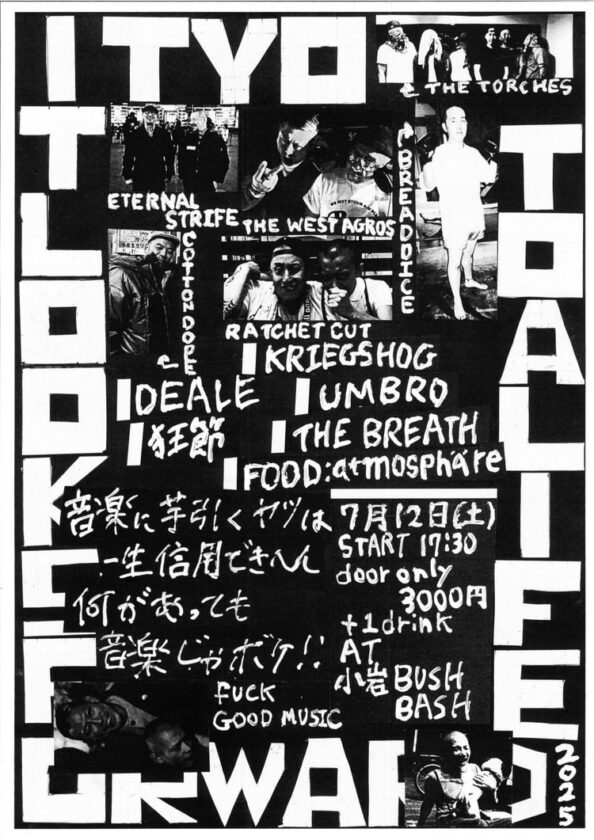 ITYO
ITLOOKEF
ORWARD
TOALIFE
2025
THE TORCHES
ETERNAL
STRIFE
THE WEST AGROS
BREADDICE
COTTON DOPE
RATCHET CUT
KRIEGSHOG
DEALE
UMBRO
狂節
THE BREATH
FOOD:atmosphäre
音楽に芋引くヤツは
一生信用できへん
何があっても
音楽じゃボケ!!
FUCK
GOOD MUSIC
7月12日(土)
START 17:30
door only
3000円
+1drink
AT
小岩 BUSH
BASH